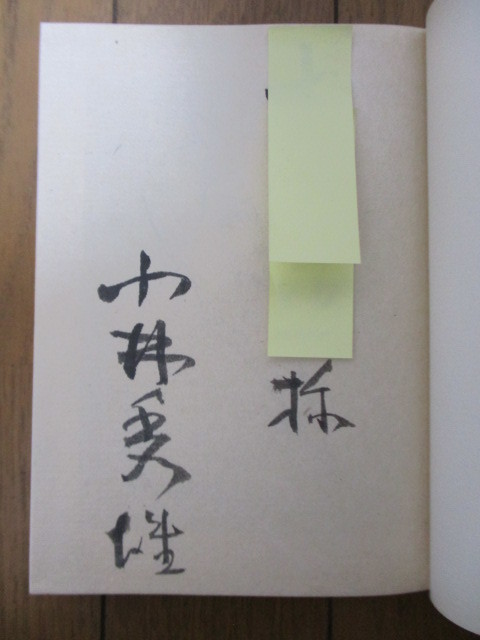 様
小林秀雄